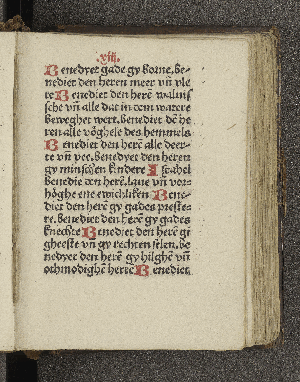 .xiij.
Benedyet gade gy borne, be-
nediet den heren meer vn̄ vle
te Benediet den herē walvis
sche vn̄ alle dat in dem watere
beweghet wert. benediet dē he
ren alle vōghele des hemmels
Benediet den herē alle deer-
te vn̄ vee. benedyet den heren
gy minschen kindere Israhel
benedie den herē. laue vn̄ vor-
hōghe ene ewichliken Bene-
diet den herē gy gades preste-
re. benediet den herē gy gades
knechte Benediet den herē gi
gheeste vn̄ gy rechten selen. be
nedyet den herē gy hilghē vn̄
othmodighē herte Benediet